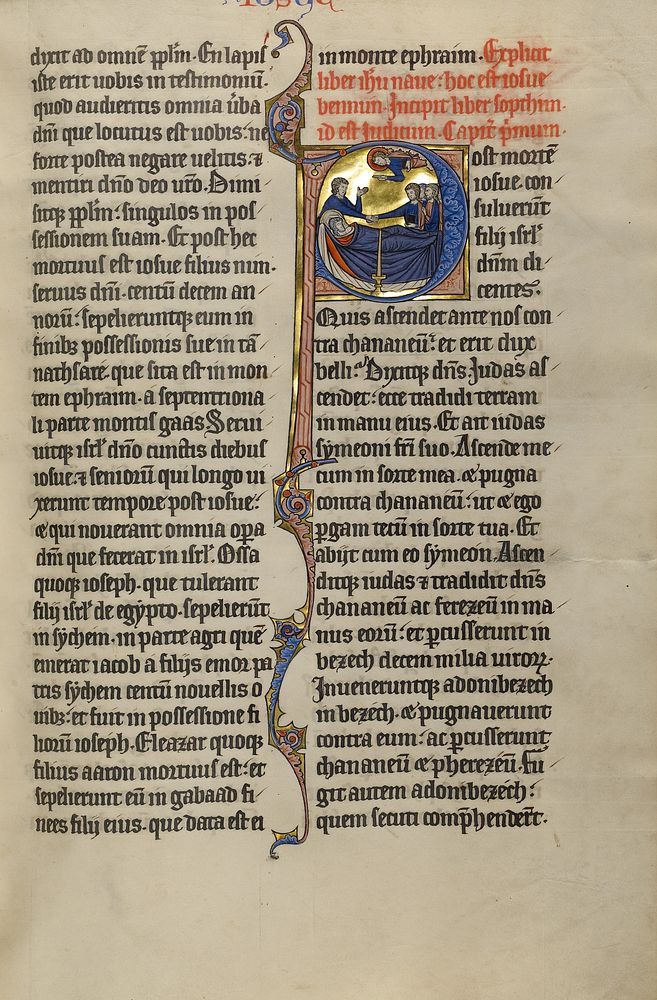 dixit ad omnē pp̄lm· En lapis
iste erit uobis in testimoniū·
quod audieritis omnia ūba
dn̄i que locutus est uobis: ne
forte postea negare uelitis· ⁊
mentiri dn̄o deo ur̄o· Dimi
sitq̄ pp̄lm: singulos in pos
sessionem suam· Et post hec
mortuus est iosue filius nun·
seruus dn̄i· centū decem an
norū: sepelieruntq̄ eum in
finibꝫ possessionis sue in tā
nathsare· que sita est in mon
tem ephraim· a septentriona
li parte montis gaas Serui
uitq̄ isrl̄ dn̄o cunctis diebus
iosue· ⁊ seniorū qui longo ui
xerunt tempore post iosue:
⁊ qui nouerant omnia oꝑa
dn̄i que fecerat in isrl̄· Ossa
quoq̄ ioseph· que tulerant
filij isrl̄ de egypto· sepelierūt
in sychem· in parte agri quē
emerat iacob a filijs emor pa
tris sychem centū nouellis o
uibꝫ: et fuit in possessione fi
liorū ioseph· Eleazar quoq̄
filius aaron mortuus est: et
sepelierunt eū in gabaad fi
nees filij eius· que data est ei
in monte ephraim· Explicit
liber ih̄u naue: hoc est iosue
bennun· Incipit liber sopthim·
id est Iudicum· Capit̄ p̄mum·
Post mortē
iosue· con
suluerūt
filij isrl̄
dn̄m di
centes:
Quis ascendet ante nos con
tra chananeū: et erit dux
belli: Dixitq̄ dn̄s: Iudas as
cendet: ecce tradidi terram
in manu eius· Et ait iudas
symeoni frī suo· Ascende me
cum in sorte mea· ⁊ pugna
contra chananeū: ut ⁊ ego
ꝑgam tecū in sorte tua· Et
abijt cum eo symeon· Ascen
ditq̄ iudas ⁊ tradidit dn̄s
chananeū ac ferezeū in ma
nus eorū: et ꝑcusserunt in
bezech decem milia uiroꝝ·
Inueneruntq̄ adonibezech
in bezech· ⁊ pugnauerunt
contra eum: ac ꝑcusserunt
chananeū ⁊ pherezeū· Fu
git autem adonibezech:
quem secuti comp̄henderūt·